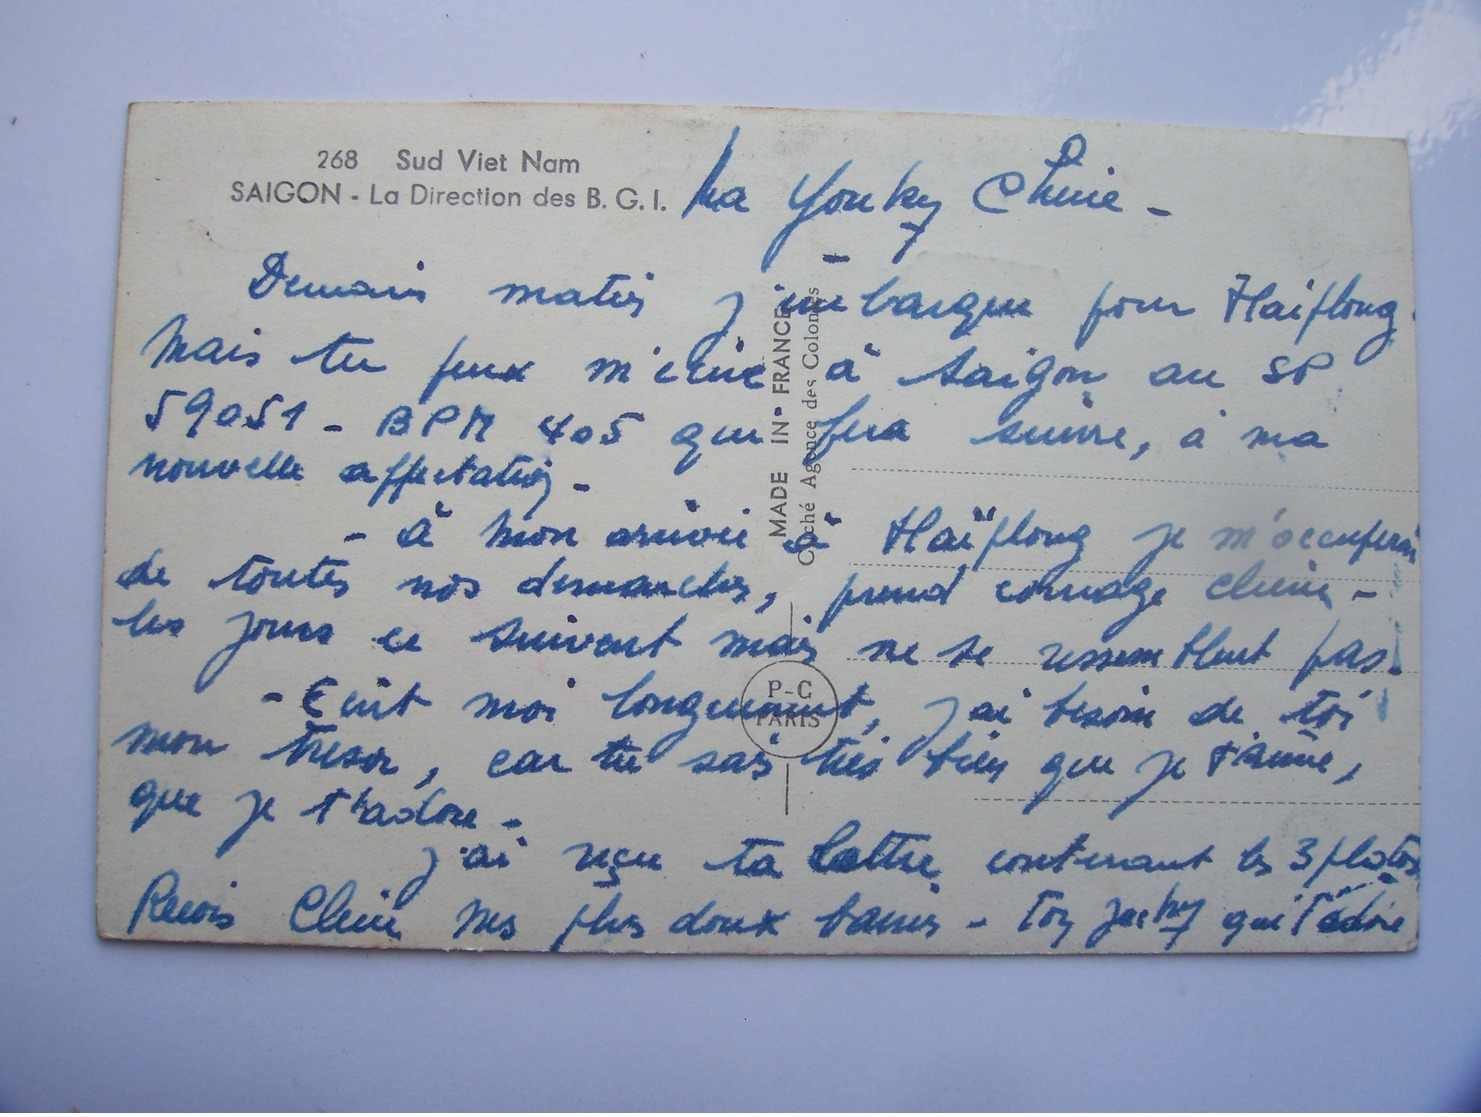 268 Sud Viet Nam
SAIGON - La Direction des B. G. I.
Ma Chérie -
Demain matin j'embarque pour Haiphong.
Mais tu peux m'écrire à Saigon au SP
59051 - BPM 405 qui fera suivre, à ma
nouvelle affectation -
- à mon arrivée à Haïphong je m'occuperai
de toutes nos démarches, prend courage chérie -
les jours ce suivent mais ne se ressemblent pas.
- Ecrit moi longuement, j'ai besoin de toi
mon tresor, car tu sais très bien que je t'aime,
que je t'adore -
j'ai reçu ta lettre contenant les 3 photos
Recois Chérie mes plus doux baisers - ton qui t'adore
MADE IN FRANCE
Cliché Agence des Colonies
P-C
PARIS